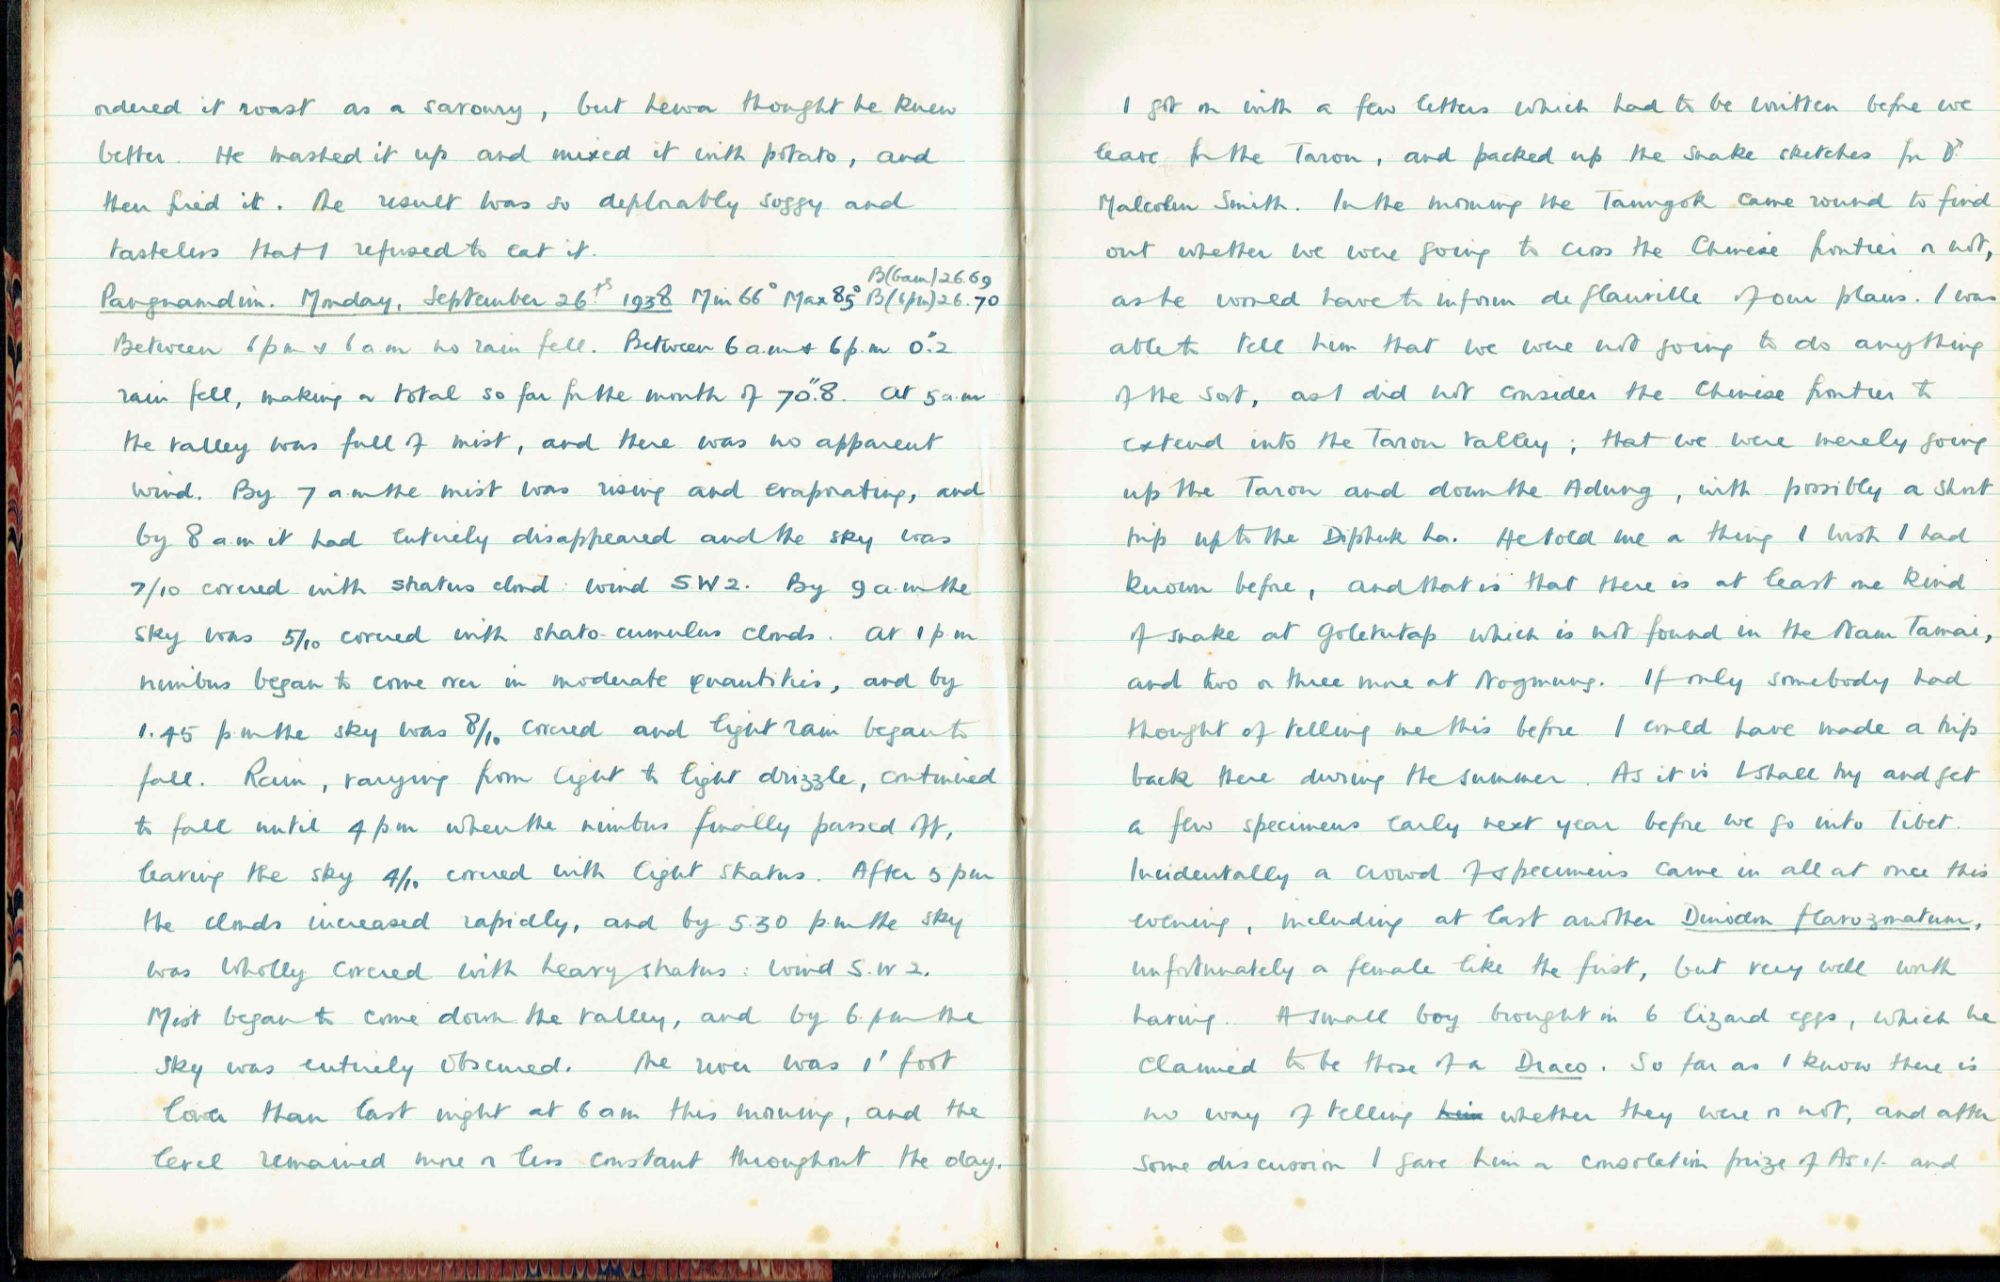 ordered it roast as a savoury, but hewa thought he knew
better. He mashed it up and mixed it with potato, and
then fried it. The result was so deplorably soggy and
tasteless that I refused to eat it.
B(6am)26.69
Pangnamdim. Monday, September 26th 1938 Min 66° Max 85° B(6pm)26.70
Between 6pm & 6a.m no rain fell. Between 6a.m & 6p.m 0".2
rain fell, making a total so far for the month of 70".8. At 5a.m
the valley was full of mist, and there was no apparent
wind. By 7 a.m the mist was rising and evaporating, and
by 8 a.m it had entirely disappeared and the sky was
7/10 covered with stratus cloud: wind SW2. By 9 a.m the
sky was 5/10 covered with strato-cumulus clouds. At 1 p.m
nimbus began to come over in moderate quantities, and by
1.45 p.m the sky was 8/10 covered and light rain began to
fall. Rain, varying from light to light drizzle, continued
to fall until 4 pm when the nimbus finally passed off,
leaving the sky 4/10 covered with light stratus. After 5 pm
the clouds increased rapidly, and by 5.30 p.m the sky
was wholly covered with heavy stratus: wind S.W 2.
Mist began to come down the valley, and by 6 pm the
sky was entirely obscured. The river was 1' foot
lower than last night at 6 am this morning, and the
level remained more or less constant throughout the day.
I got on with a few letters which had to be written before we
leave for the Taron, and packed up the snake sketches for Dr
Malcolm Smith. In the morning the Taungok came round to find
out whether we were going to cross the Chinese frontier or not,
as he would have to inform de Glanville of our plans. I was
able to tell him that we were not going to do anything
of the sort, as I did not consider the Chinese frontier to
extend into the Taron valley; that we were merely going
up the Taron and down the Adung, with possibly a short
trip up to the Diphuk La. He told me a thing I wish I had
known before, and that is that there is at least one kind
of snake at Goletutap which is not found in the Nam Tamai,
and two or three more at Nogmung. If only somebody had
thought of telling me this before I could have made a trip
back there during the summer. As it is I shall try and get
a few specimens early next year before we go into Tibet.
Incidentally a crowd of specimens came in all at once this
evening, including at last another Dinodon flavozonatum,
unfortunately a female like the first, but very well worth
having. A small boy brought in 6 lizard eggs, which he
claimed to be those of a Draco. So far as I know there is
no way of telling him whether they were or not, and after
some discussion I gave him a consolation prize of As 1/- and